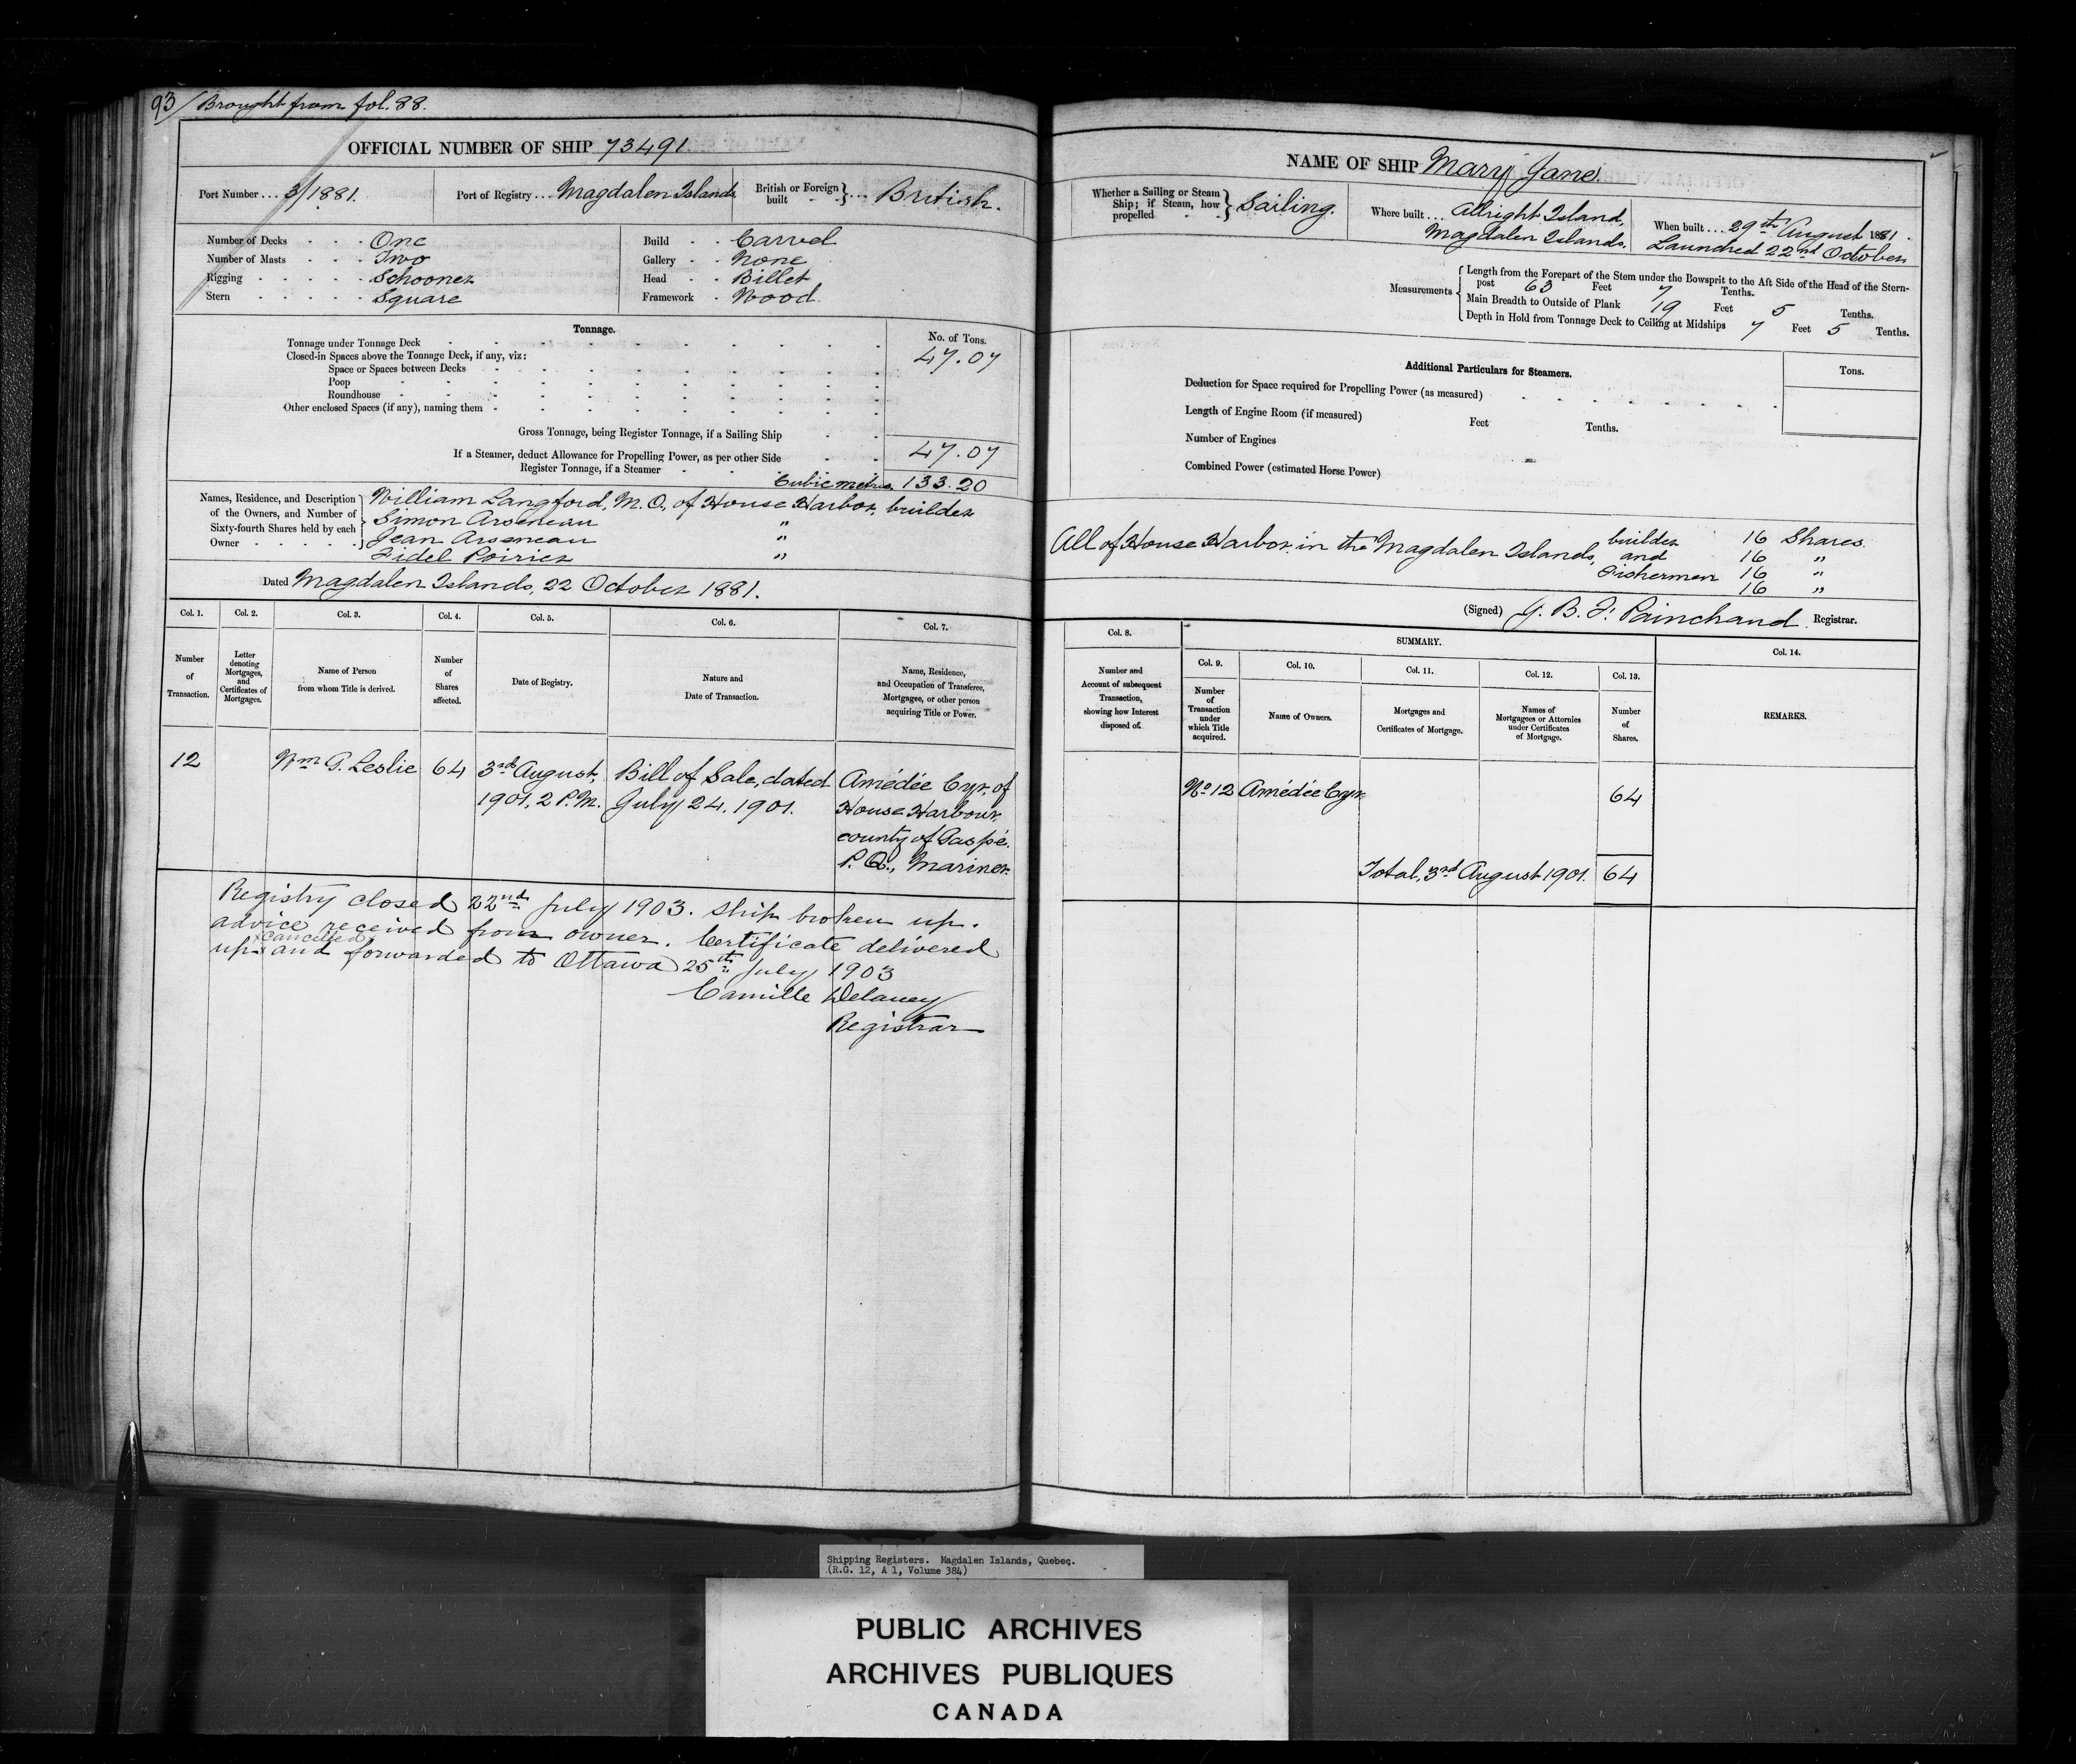 93/ Brought from fol. 88.
OFFICIAL NUMBER OF SHIP 73491
Port Number ... 3/1881. Port of Registry ... Magdalen Islands British or Foreign built } ... British.
Number of Decks - - - One
Number of Masts - - - Two
Rigging - - - - - Schooner
Stern - - - - - Square
Build - - Carvel
Gallery - - None
Head - - Billet
Framework - Wood.
Tonnage. No. of Tons.
Tonnage under Tonnage Deck 47.07
Closed-in Spaces above the Tonnage Deck, if any, viz:
Space or Spaces between Decks
Poop
Roundhouse
Other enclosed Spaces (if any), naming them
Gross Tonnage, being Register Tonnage, if a Sailing Ship
If a Steamer, deduct Allowance for Propelling Power, as per other Side 47.07
Register Tonnage, if a Steamer
Cubic metres 133.20
Names, Residence, and Description of the Owners, and Number of Sixty-fourth Shares held by each Owner
William Langford, M.O., of House Harbor, builder
Simon Arseneau "
Jean Arseneau "
Fidel Poirier "
Dated Magdalen Islands, 22 October 1881.
Col. 1. Col. 2. Col. 3. Col. 4. Col. 5. Col. 6. Col. 7.
Number of Transaction.
Letter denoting Mortgages, and Certificates of Mortgages.
Name of Person from whom Title is derived.
Number of Shares affected.
Date of Registry.
Nature and Date of Transaction.
Name, Residence, and Occupation of Transferee, Mortgagee, or other person acquiring Title or Power.
12 Wm G. Leslie 64 3rd August, Bill of Sale, dated Amédée Cyr, of
1901, 2 P.M. July 24, 1901. House Harbour
county of Gaspé.
P.Q., Mariner.
Registry closed 22nd July 1903. Ship broken up.
advice received from owner. Certificate delivered
x cancelled x
up x and forwarded to Ottawa 25th July 1903
Camille Delaney
Registrar
NAME OF SHIP Mary Jane.
Whether a Sailing or Steam Ship; if Steam, how propelled } Sailing.
Where built ... Allright Island,
Magdalen Islands.
When built ... 29th August 1881.
Launched 22nd October
Measurements
Length from the Forepart of the Stem under the Bowsprit to the Aft Side of the Head of the Stern-
post 63 Feet 7 Tenths.
Main Breadth to Outside of Plank 19 Feet 5 Tenths.
Depth in Hold from Tonnage Deck to Ceiling at Midships 7 Feet 5 Tenths.
Additional Particulars for Steamers. Tons.
Deduction for Space required for Propelling Power (as measured)
Length of Engine Room (if measured) Feet Tenths.
Number of Engines
Combined Power (estimated Horse Power)
All of House Harbor in the Magdalen Islands, builder 16 Shares.
and 16 "
Fishermen 16 "
16 "
(Signed) J. B. F. Painchaud Registrar.
Col. 8. SUMMARY. Col. 14.
Col. 9. Col. 10. Col. 11. Col. 12. Col. 13.
Number and Account of subsequent Transaction, showing how Interest disposed of.
Number of Transaction under which Title acquired.
Name of Owners.
Mortgages and Certificates of Mortgage.
Names of Mortgagees or Attornies under Certificates of Mortgage.
Number of Shares.
REMARKS.
No 12 Amédée Cyr. 64
Total, 3rd August 1901. 64
Shipping Registers. Magdalen Islands, Quebec.
(R.G. 12, A 1, Volume 384)
PUBLIC ARCHIVES
ARCHIVES PUBLIQUES
CANADA